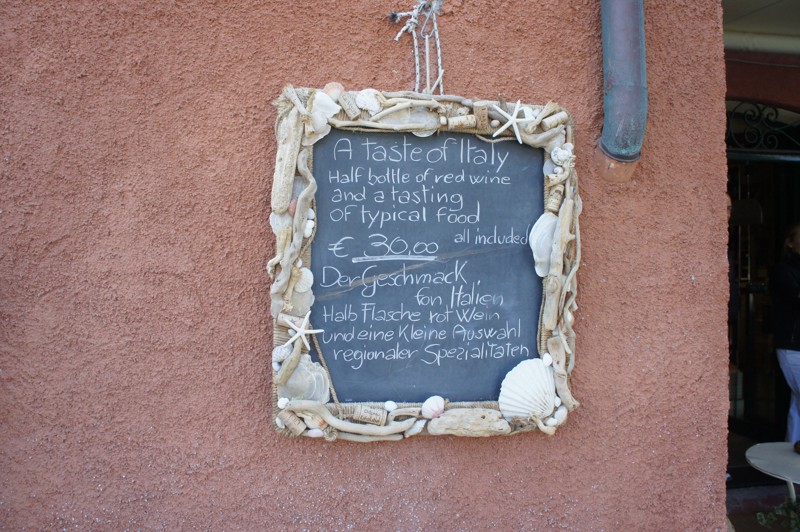 A taste of Italy
Half bottle of red wine
and a tasting
of typical food
€ 30,00 all included
Der Geschmack
fon Italien
Halb Flasche rot Wein
und eine Kleine Auswahl
regionaler Spezialitäten